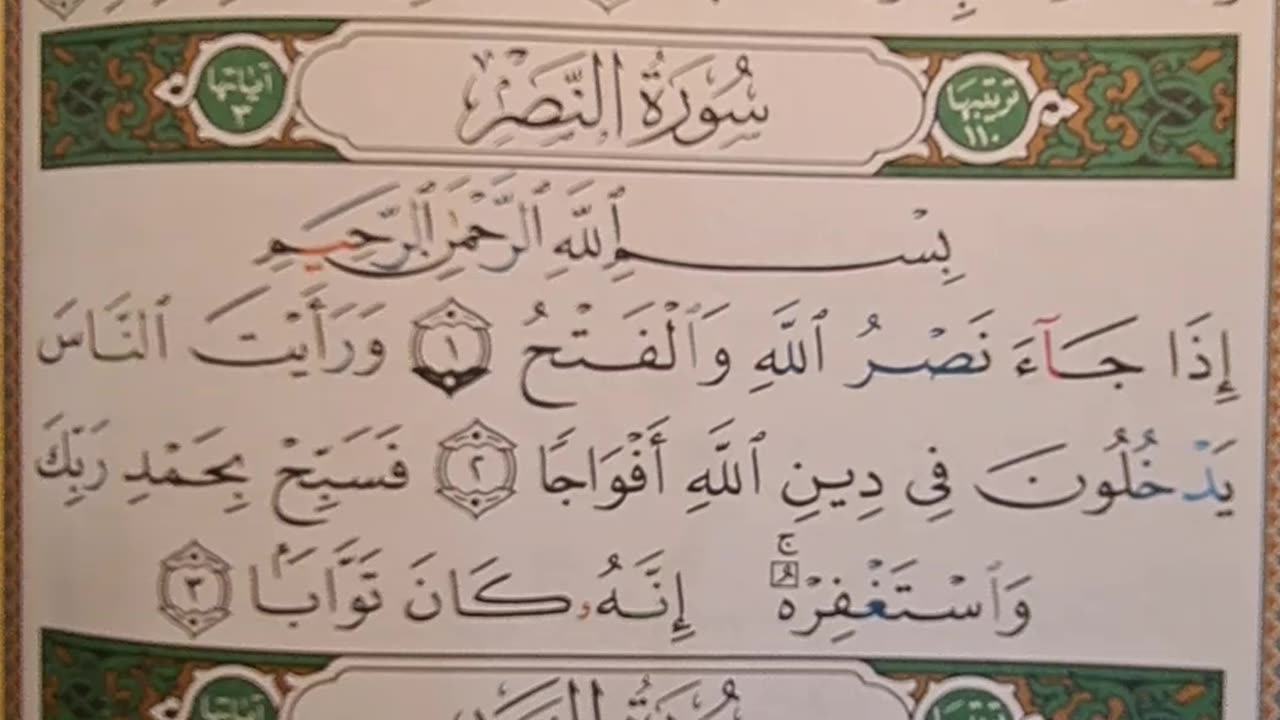 ترتيبها ١١٠
سُورَةُ النَّصْرِ
آياتها ٣
بِسْمِ ٱللَّهِ ٱلرَّحْمَٰنِ ٱلرَّحِيمِ
إِذَا جَآءَ نَصْرُ ٱللَّهِ وَٱلْفَتْحُ ١ وَرَأَيْتَ ٱلنَّاسَ
يَدْخُلُونَ فِى دِينِ ٱللَّهِ أَفْوَاجًا ٢ فَسَبِّحْ بِحَمْدِ رَبِّكَ
وَٱسْتَغْفِرْهُ ۚ إِنَّهُۥ كَانَ تَوَّابَۢا ٣
ترتيبها
سُورَةُ
آياتها